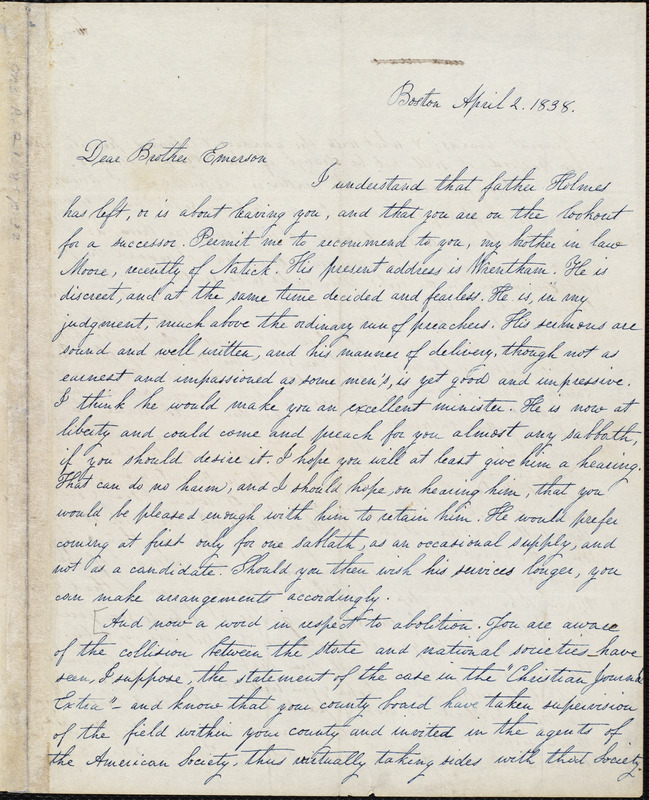 Boston April 2. 1838.
Dear Brother Emerson
I understand that father Holmes
has left, or is about leaving you, and that you are on the lookout
for a successor. Permit me to recommend to you, my brother in law
Moore, recently of Natick. His present address is Wrentham. He is
discreet, and at the same time decided and fearless. He is, in my
judgment, much above the ordinary run of preachers. His sermons are
sound and well written, and his manner of delivery, though not as
earnest and impassioned as some men's, is yet good and impressive.
I think he would make you an excellent minister. He is now at
liberty and could come and preach for you almost any sabbath,
if you should desire it. I hope you will at least give him a hearing.
That can do no harm, and I should hope, on hearing him, that you
would be pleased enough with him to retain him. He would prefer
coming at first only for one sabbath, as an occasional supply, and
not as a candidate. Should you then wish his services longer, you
can make arrangements accordingly.
[And now a word in respect to abolition. You are aware
of the collision between the state and national societies – have
seen, I suppose, the statement of the case in the "Christian Journal
Extra" – and know that your county board have taken supervision
of the field within your county and invited in the agents of
the American Society, thus virtually taking sides with that Society.